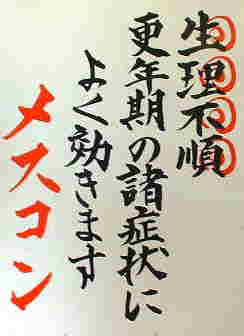 生理不順
更年期の諸症状に
よく効きます
メスコン